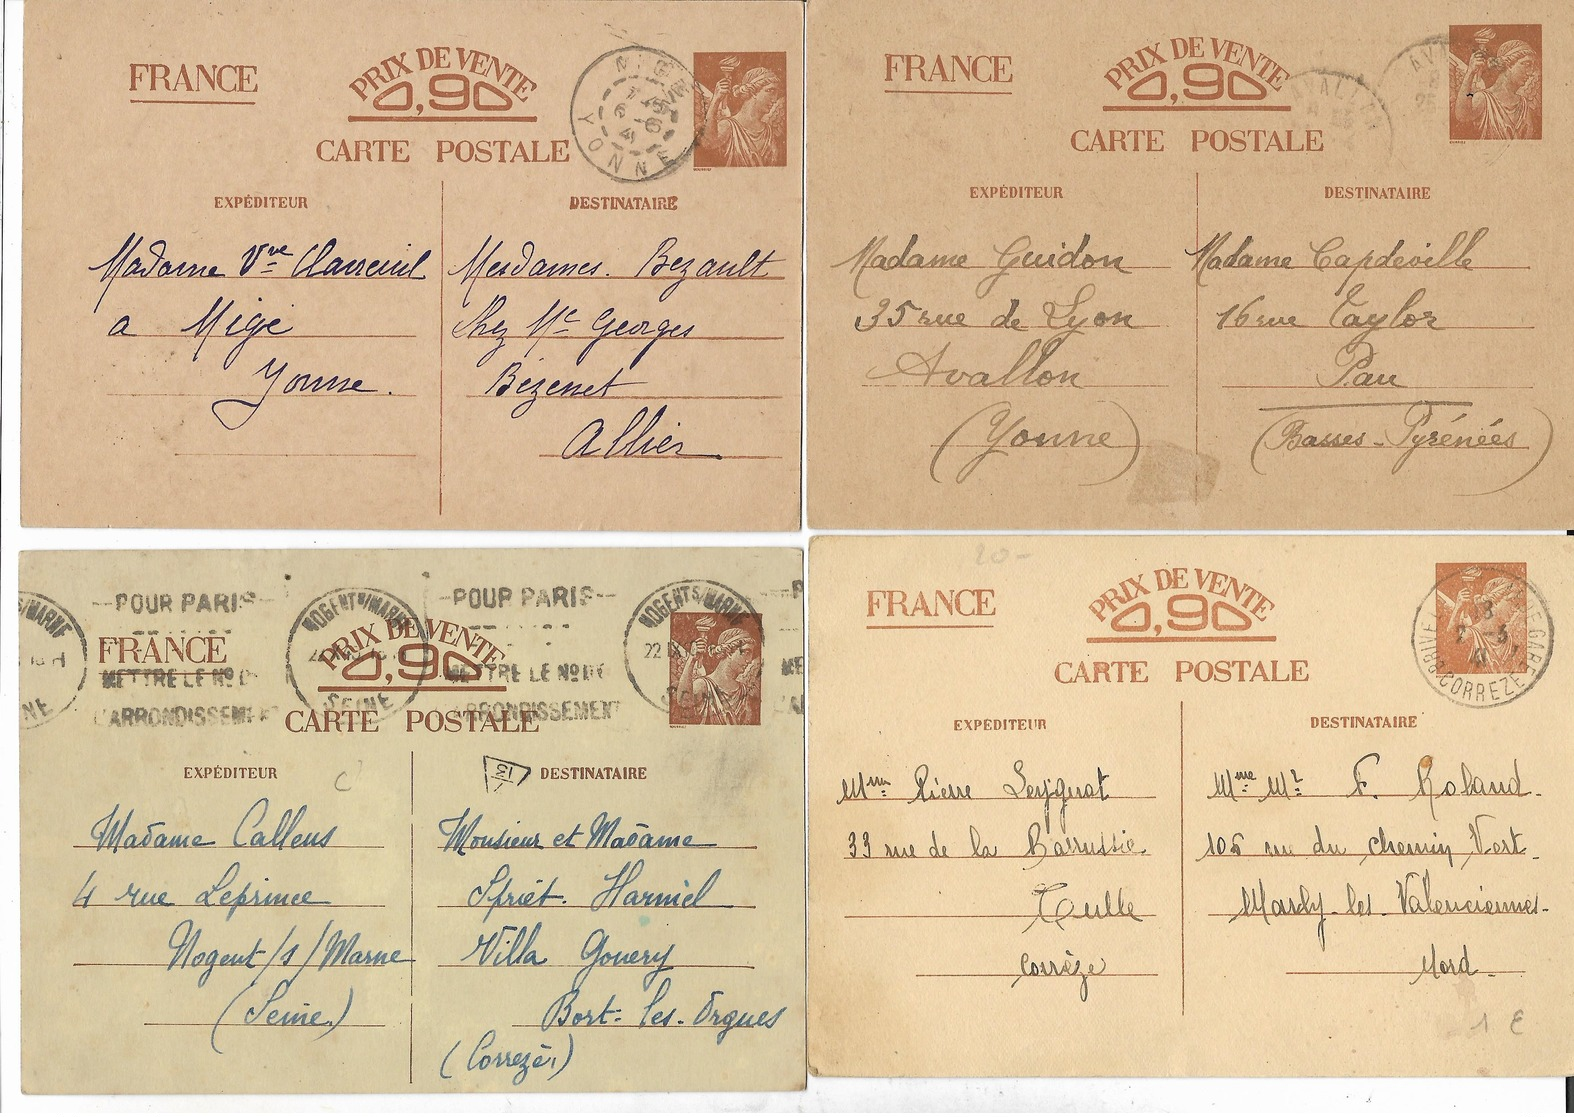 FRANCE
PRIX DE VENTE
0,90
CARTE POSTALE
MIGÉ
6 -6
41
YONNE
EXPÉDITEUR
DESTINATAIRE
Madame Vve
a Migé
Yonne.
Mesdames. Bezault
Chez Mr Georges
Bézenet
Allier
FRANCE
PRIX DE VENTE
0,90
CARTE POSTALE
AVALLON
EXPÉDITEUR
DESTINATAIRE
Madame Guidon
35 rue de Lyon
Avallon
(Yonne)
Madame Capdeville
16 rue Taylor
Pau
(Basses-Pyrénées)
FRANCE
PRIX DE VENTE
0,90
CARTE POSTALE
S/MARNE
--POUR PARIS--
METTRE LE No DE
L'ARRONDISSEMENT
NOGENT S/MARNE
SEINE
--POUR PARIS--
METTRE LE No DE
L'ARRONDISSEMENT
NOGENT S/MARNE
22 IX
SEINE
EXPÉDITEUR
DESTINATAIRE
Madame Callens
4 rue Leprince
Nogent/s/Marne
(Seine)
Monsieur et Madame
Spriet. Harniel
Villa Gouery
Bort-les-Orgues
(Corrèze)
20-
FRANCE
PRIX DE VENTE
0,90
CARTE POSTALE
BRIVE GARE
18
2 -3
41
CORREZE
EXPÉDITEUR
DESTINATAIRE
Mme Pierre Leygnat
33 rue de la Barrussie
Tulle
Corrèze
Mme Mr F. Roland.
105 rue du Chemin Vert.
Marly-les-Valenciennes-
Nord-
1 €